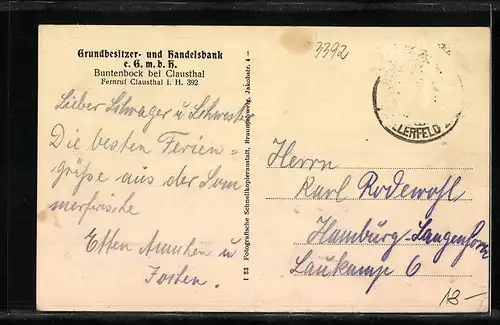 Grundbesitzer- und Handelsbank
e. G. m. b. H.
Buntenbock bei Clausthal
Fernruf Clausthal i. H. 392
3392
LLERFELD
Lieber Schwager u Schwester
Die besten Ferien-
grüße aus der Som
merfrische
u
1 33 Fotografische Schnellkopieranstalt, Braunschweig, Jakobstr. 4 –
Herrn
Karl Rodewohl
Hamburg-Langenhorn
Laukamp 6
18 –